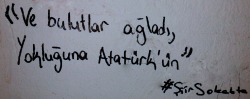 "Ve bulutlar ağladı,
Yokluğuna Atatürk'ün"
#ŞiirSokakta